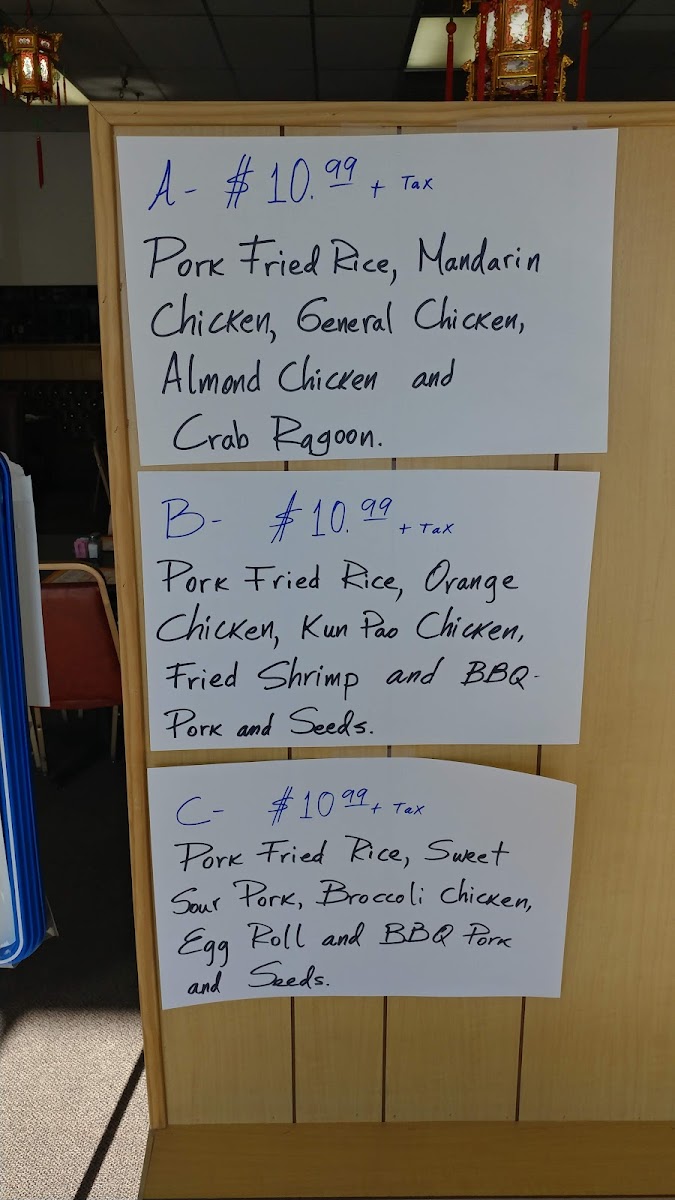 A- $10.99 + Tax
Pork Fried Rice, Mandarin
Chicken, General Chicken,
Almond Chicken and
Crab Ragoon.
B- $10.99 + Tax
Pork Fried Rice, Orange
Chicken, Kun Pao Chicken,
Fried Shrimp and BBQ-
Pork and Seeds.
C- $10 99 + Tax
Pork Fried Rice, Sweet
Sour Pork, Broccoli Chicken,
Egg Roll and BBQ Pork
and Seeds.